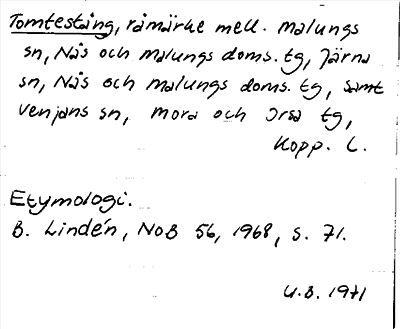 Tomtestång, råmärke mell. Malungs
sn, Nås och Malungs doms. tg, Järna
sn, Nås och Malungs doms. tg, samt
Venjans sn, Mora och Orsa tg,
Kopp. L.
Etymologi.
B. Lindén, NoB 56, 1968, s. 71.
U.B. 1971